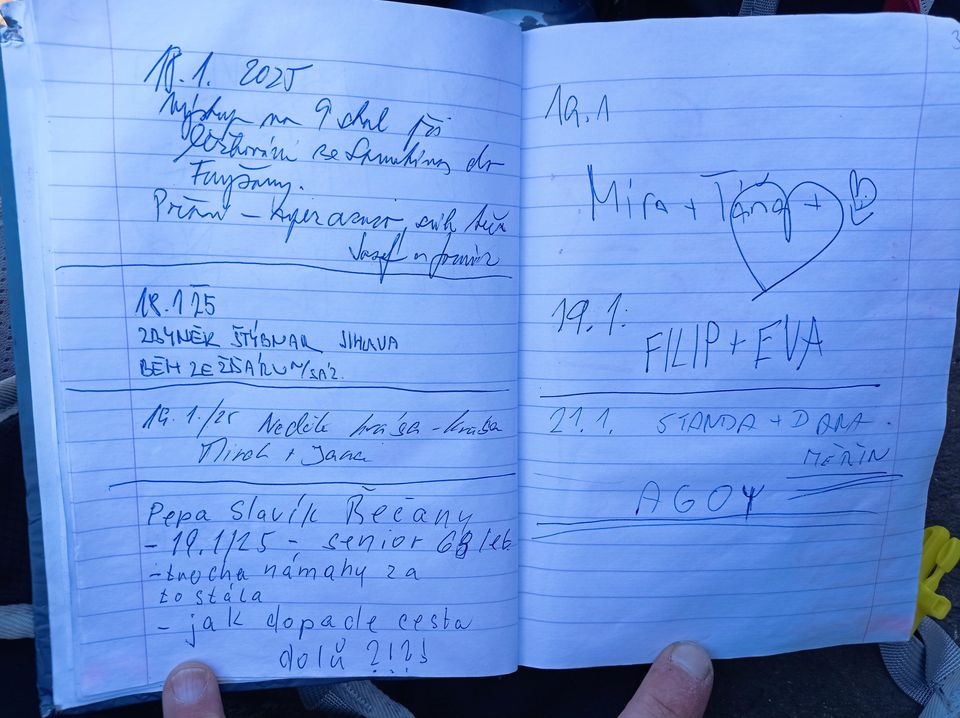 18.1. 2025
Výstup na 9 skal při
do
Fryšavy.
18.1 25
ZBYNĚK ŠTÝBNAR JIHLAVA
BĚH ZE ŽĎÁRU N/SÁZ.
19.1./25 Neděle krása-krása
Mirek + Jana
Pepa Slavík Běčany
- 19.1/25 - senior 68 let
- trocha námahy za
to stála
- jak dopade cesta
dolů ?!?!
19.1
Míra + Táňa +
19.1.
FILIP + EVA
21.1. STANDA + DANA.
MĚŘÍN
AGOY